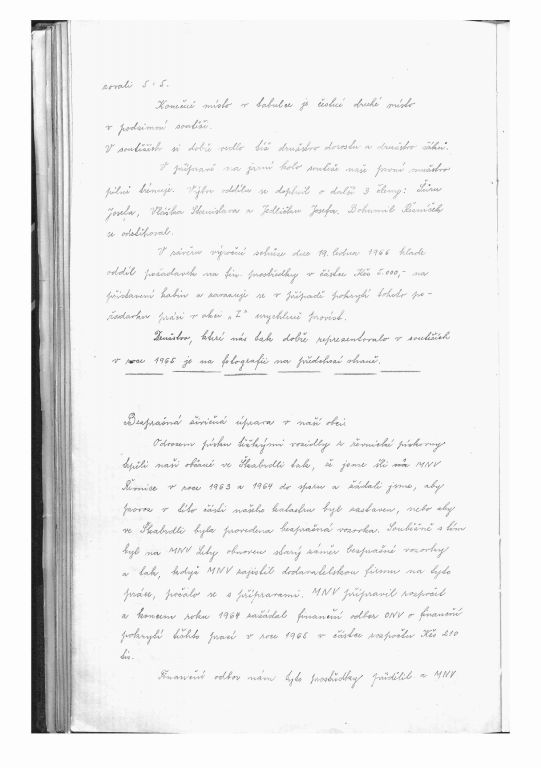 rovali 5 : 5.
Konečné místo v tabulce je čestné druhé místo
v podzimní soutěži.
V soutěžích si dobře vedlo též družstvo dorostu a družstvo žáků.
V přípravě na jarní kolo soutěže naše první mužstvo
pilně trénuje. Výbor oddílu se doplnil o další 3 členy:
Josefa, Vláška Stanislava a Jedličku Josefa. Bohumil Řezníček
se odstěhoval.
V závěru výroční schůze dne 19. ledna 1966 klade
oddíl požadavek na fin. prostředky v částce Kčs 5.000,- na
přistavení kabin a zavazuje se v případě pokrytí tohoto po-
žadavku práci v akci „Z" urychleně provést.
Družstvo, které nás tak dobře reprezentovalo v soutěžích
v roce 1965 je na fotografii na předchozí straně.
Bezprašná živičná úprava v naší obci
Odvozem písku těžkými vozidly z řevnické pískovny
trpěli naši občané ve Škabrdli tak, že jsme šli na MNV
Řevnice v roce 1963 a 1964 do sporu a žádali jsme, aby
provoz v této části našeho katastru byl zastaven, nebo aby
ve Škabrdli byla provedena bezprašná vozovka. Současně s tím
byl na MNV Lety obnoven starý záměr bezprašné vozovky
a tak, když MNV zajistil dodavatelskou firmu na tyto
práce, počalo se s přípravami. MNV připravil rozpočet
a koncem roku 1964 zažádal finanční odbor ONV o finanční
pokrytí těchto prací v roce 1965 v částce rozpočtu Kčs 210
tis.
Finanční odbor nám tyto prostředky přidělil a MNV